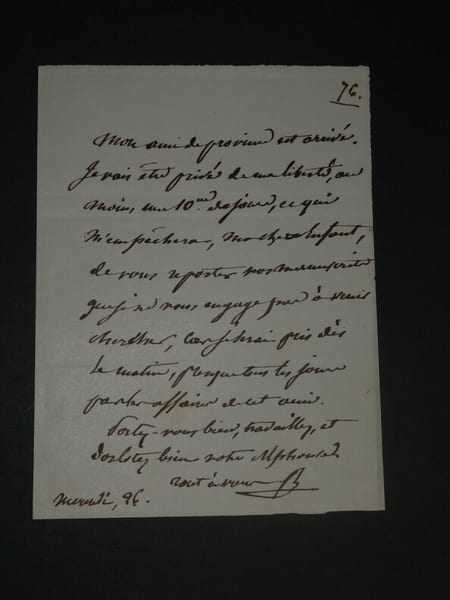 76.
Mon ami de province est arrivé.
Je vais être privé de ma liberté, au
moins, une 10ne de jours, ce qui
m'empêchera, ma chere Enfant,
de vous reporter vos manuscrits
que je ne vous engage pas à venir
chercher, car je serai pris dès
le matin, presque tous les jours
par les affaires de cet ami.
Portez-vous bien, travaillez, et
dorlotez bien notre Alphonse
tout à vous
mercredi, 26.